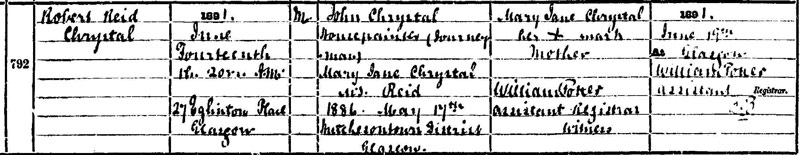 792
Robert Reid
Chrystal
1891.
June
Fourteenth
1h. 20m A.M.
27 Eglinton Place
Glasgow
M
John Chrystal
Housepainter (Journey
-man)
Mary Jane Chrystal
M.S. Reid
1886. May 17th
Hutchesontown District
Glasgow.
Mary Jane Chrystal
her X mark
Mother
William Potter
Assistant Registrar
Witness
1891.
June 19th
Glasgow
William Potter
Assistant Registrar.